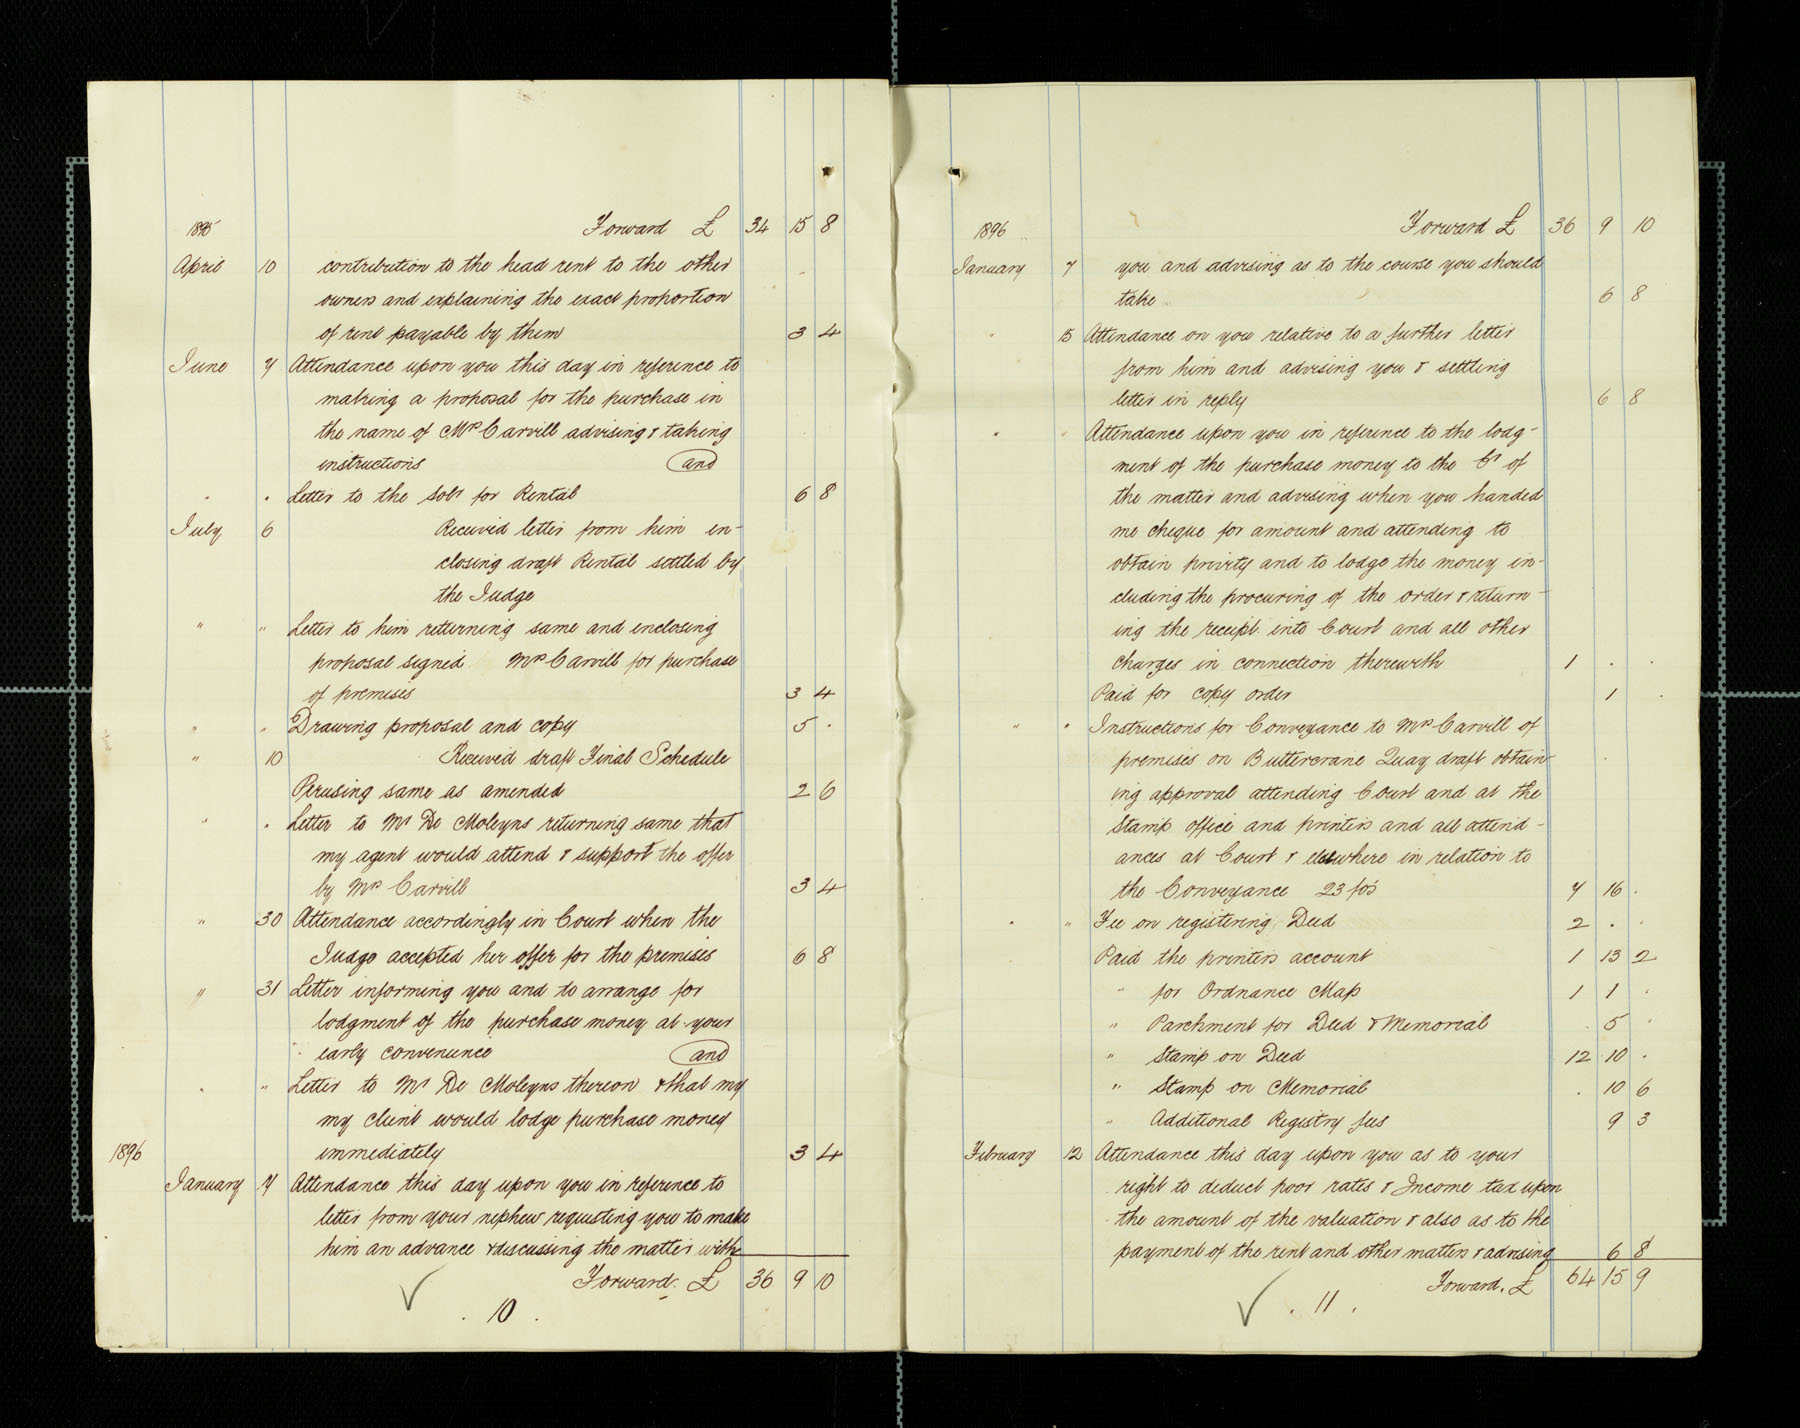 1895 Forward £ 34 15 8
April 10 contribution to the head rent to the other
owners and explaining the exact proportion
of rent payable by them 3 4
June 7 Attendance upon you this day in reference to
making a proposal for the purchase in
the name of Mrs Carvill advising & taking
instructions and
" " Letter to the Solr for Rental 6 8
July 6 Received letter from him en-
closing draft Rental settled by
the Judge
" " Letter to him returning same and enclosing
proposal signed Mrs Carvill for purchase
of premises 3 4
" " Drawing proposal and copy 5 .
" 10 Received draft Final Schedule
Perusing same as amended 2 6
" " Letter to Mr De Moleyns returning same that
my agent would attend & support the offer
by Mrs Carvill 3 4
" 30 Attendance accordingly in Court when the
Judge accepted her offer for the premises 6 8
" 31 Letter informing you and to arrange for
lodgment of the purchase money at your
early convenience and
" " Letter to Mr De Moleyns thereon & that my
my client would lodge purchase money
immediately 3 4
1896
January 7 Attendance this day upon you in reference to
letter from your nephew requesting you to make
him an advance & discussing the matter with
Forward. £ 36 9 10
. 10 .
1896 Forward £ 36 9 10
January 7 you and advising as to the course you should
take 6 8
" 15 Attendance on you relative to a further letter
from him and advising you & settling
letter in reply 6 8
" " Attendance upon you in reference to the lodg-
ment of the purchase money to the Cr of
the matter and advising when you handed
me cheque for amount and attending to
obtain privity and to lodge the money in-
cluding the procuring of the order & return-
ing the receipt into Court and all other
charges in connection therewith 1 . .
Paid for copy order 1 .
" " Instructions for Conveyance to Mrs Carvill of
premises on Buttercrane Quay draft obtain-
ing approval attending Court and at the
Stamp office and printers and all attend-
ances at Court & elsewhere in relation to
the Conveyance 23 fos 7 16 .
" " Fee on registering Deed 2 . .
Paid the printers account 1 13 2
" for Ordnance Map 1 1 .
" Parchment for Deed & Memorial . 5 .
" Stamp on Deed 12 10 .
" Stamp on Memorial . 10 6
" Additional Registry fees 9 3
February 12 Attendance this day upon you as to your
right to deduct poor rates & Income tax upon
the amount of the valuation & also as to the
payment of the rent and other matters & advising 6 8
Forward. £ 64 15 9
. 11 .